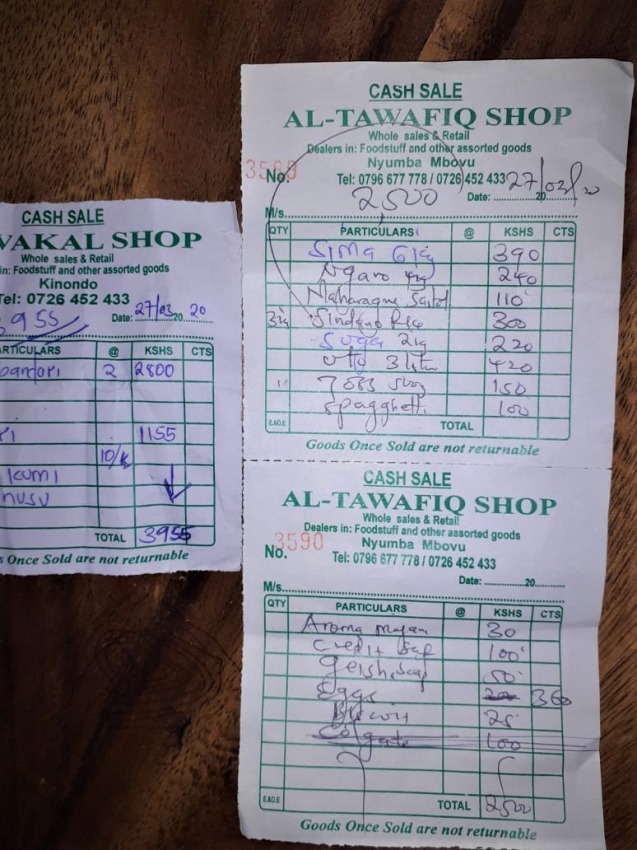 CASH SALE
VAKAL SHOP
Whole sales & Retail
in: Foodstuff and other assorted goods
Kinondo
Tel: 0726 452 433
955
Date: 27/03 20 20
ARTICULARS @ KSHS CTS
2 2800
1155
10/k
kumi
nusu
TOTAL 3955
s Once Sold are not returnable
CASH SALE
AL-TAWAFIQ SHOP
Whole sales & Retail
Dealers in: Foodstuff and other assorted goods
Nyumba Mbovu
No. Tel: 0796 677 778 / 0726 452 433
2500
Date: 27/03/20 20
M/s
QTY PARTICULARS @ KSHS CTS
Sima 6kg 390
Ngano 4kg 240
Maharagwe 110
3kg Sindano Rice 300
2kg 220
3 420
150
Spagghetti 100
E.&O.E TOTAL
Goods Once Sold are not returnable
CASH SALE
AL-TAWAFIQ SHOP
Whole sales & Retail
Dealers in: Foodstuff and other assorted goods
Nyumba Mbovu
No. 3590 Tel: 0796 677 778 / 0726 452 433
Date: 20
M/s
QTY PARTICULARS @ KSHS CTS
Aroma 30
100
Geisha soap 50
Eggs 360
25
Colgate 100
E.&O.E TOTAL 2500
Goods Once Sold are not returnable